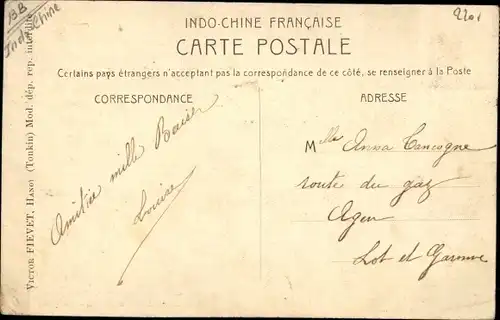 13B
Indo Chine
2201
INDO-CHINE FRANÇAISE
CARTE POSTALE
Certains pays étrangers n'acceptant pas la correspondance de ce côté, se renseigner à la Poste
CORRESPONDANCE
ADRESSE
Amitié mille Baiser
Louise
Melle Anna Cancogne
route du gaz
Agen
Lot et Garonne
VICTOR FIEVET, HANOI (Tonkin) Mod. dép. rep. interdite